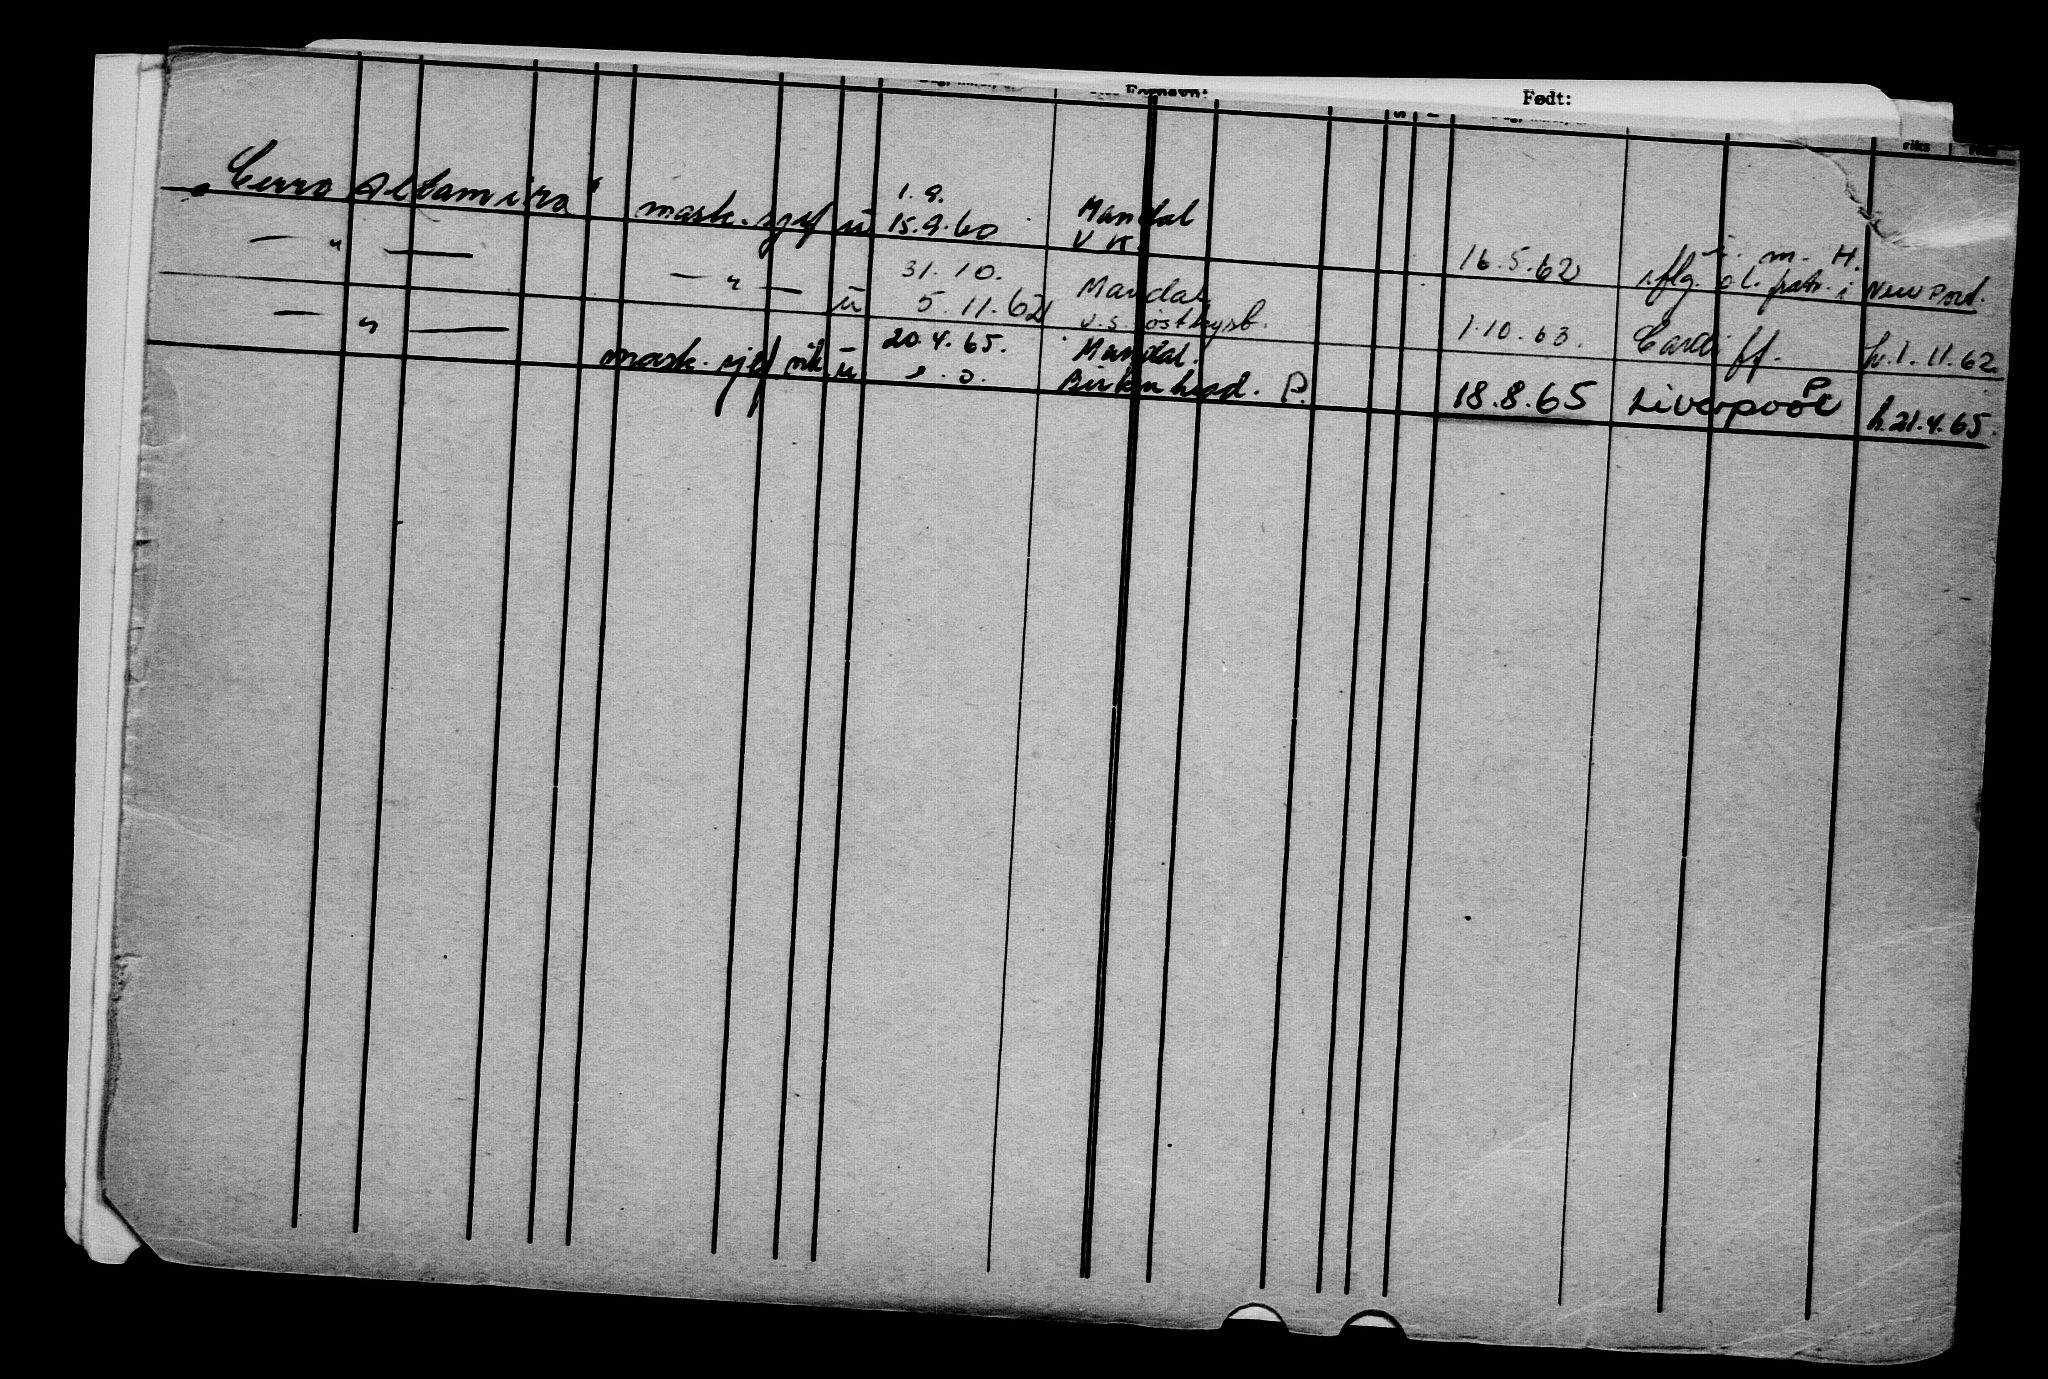 Fornavn: Født:
riks
"Cerro Altamira" mask. sjef u 1.9. 15.9.60 Mandal V.K. 16.5.62 i. m. H. iflg. ol. patr. i New Port.
— " — — " — u 31.10. 5.11.62 Mandal U.S. østkyst. 1.10.63. Cardiff. h.1.11.62.
— " — mask. sjef vik. u 20.4.65. Mandal. Birkenhead. P. 18.8.65 Liverpool P h.21.4.65.